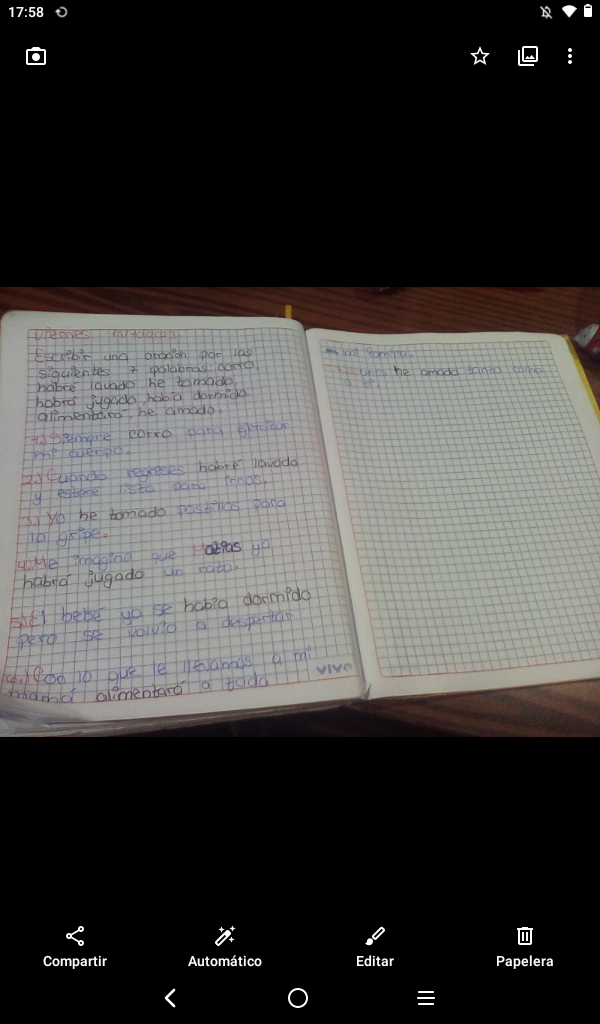 17:58
Viernes
Escribir una oración por las
siguientes 7 palabras corro,
habré lavado he tomado,
habrá jugado, había dormido
alimentará, he amado.
1.) Siempre corro para
mi cuerpo.
2.) Cuando regreses habré lavado
y estaré lista para irnos.
3.) Yo he tomado pastillas para
la gripe.
4. Me imagino que Matias ya
habrá jugado un rato.
5.) El bebé ya se había dormido
pero se volvió a despertar
6.) Con lo que le llevamos a mi
mamá alimentará a toda
vivo
mi familia.
7.) nunca he amado tanto como
a
Compartir
Automático
Editar
Papelera